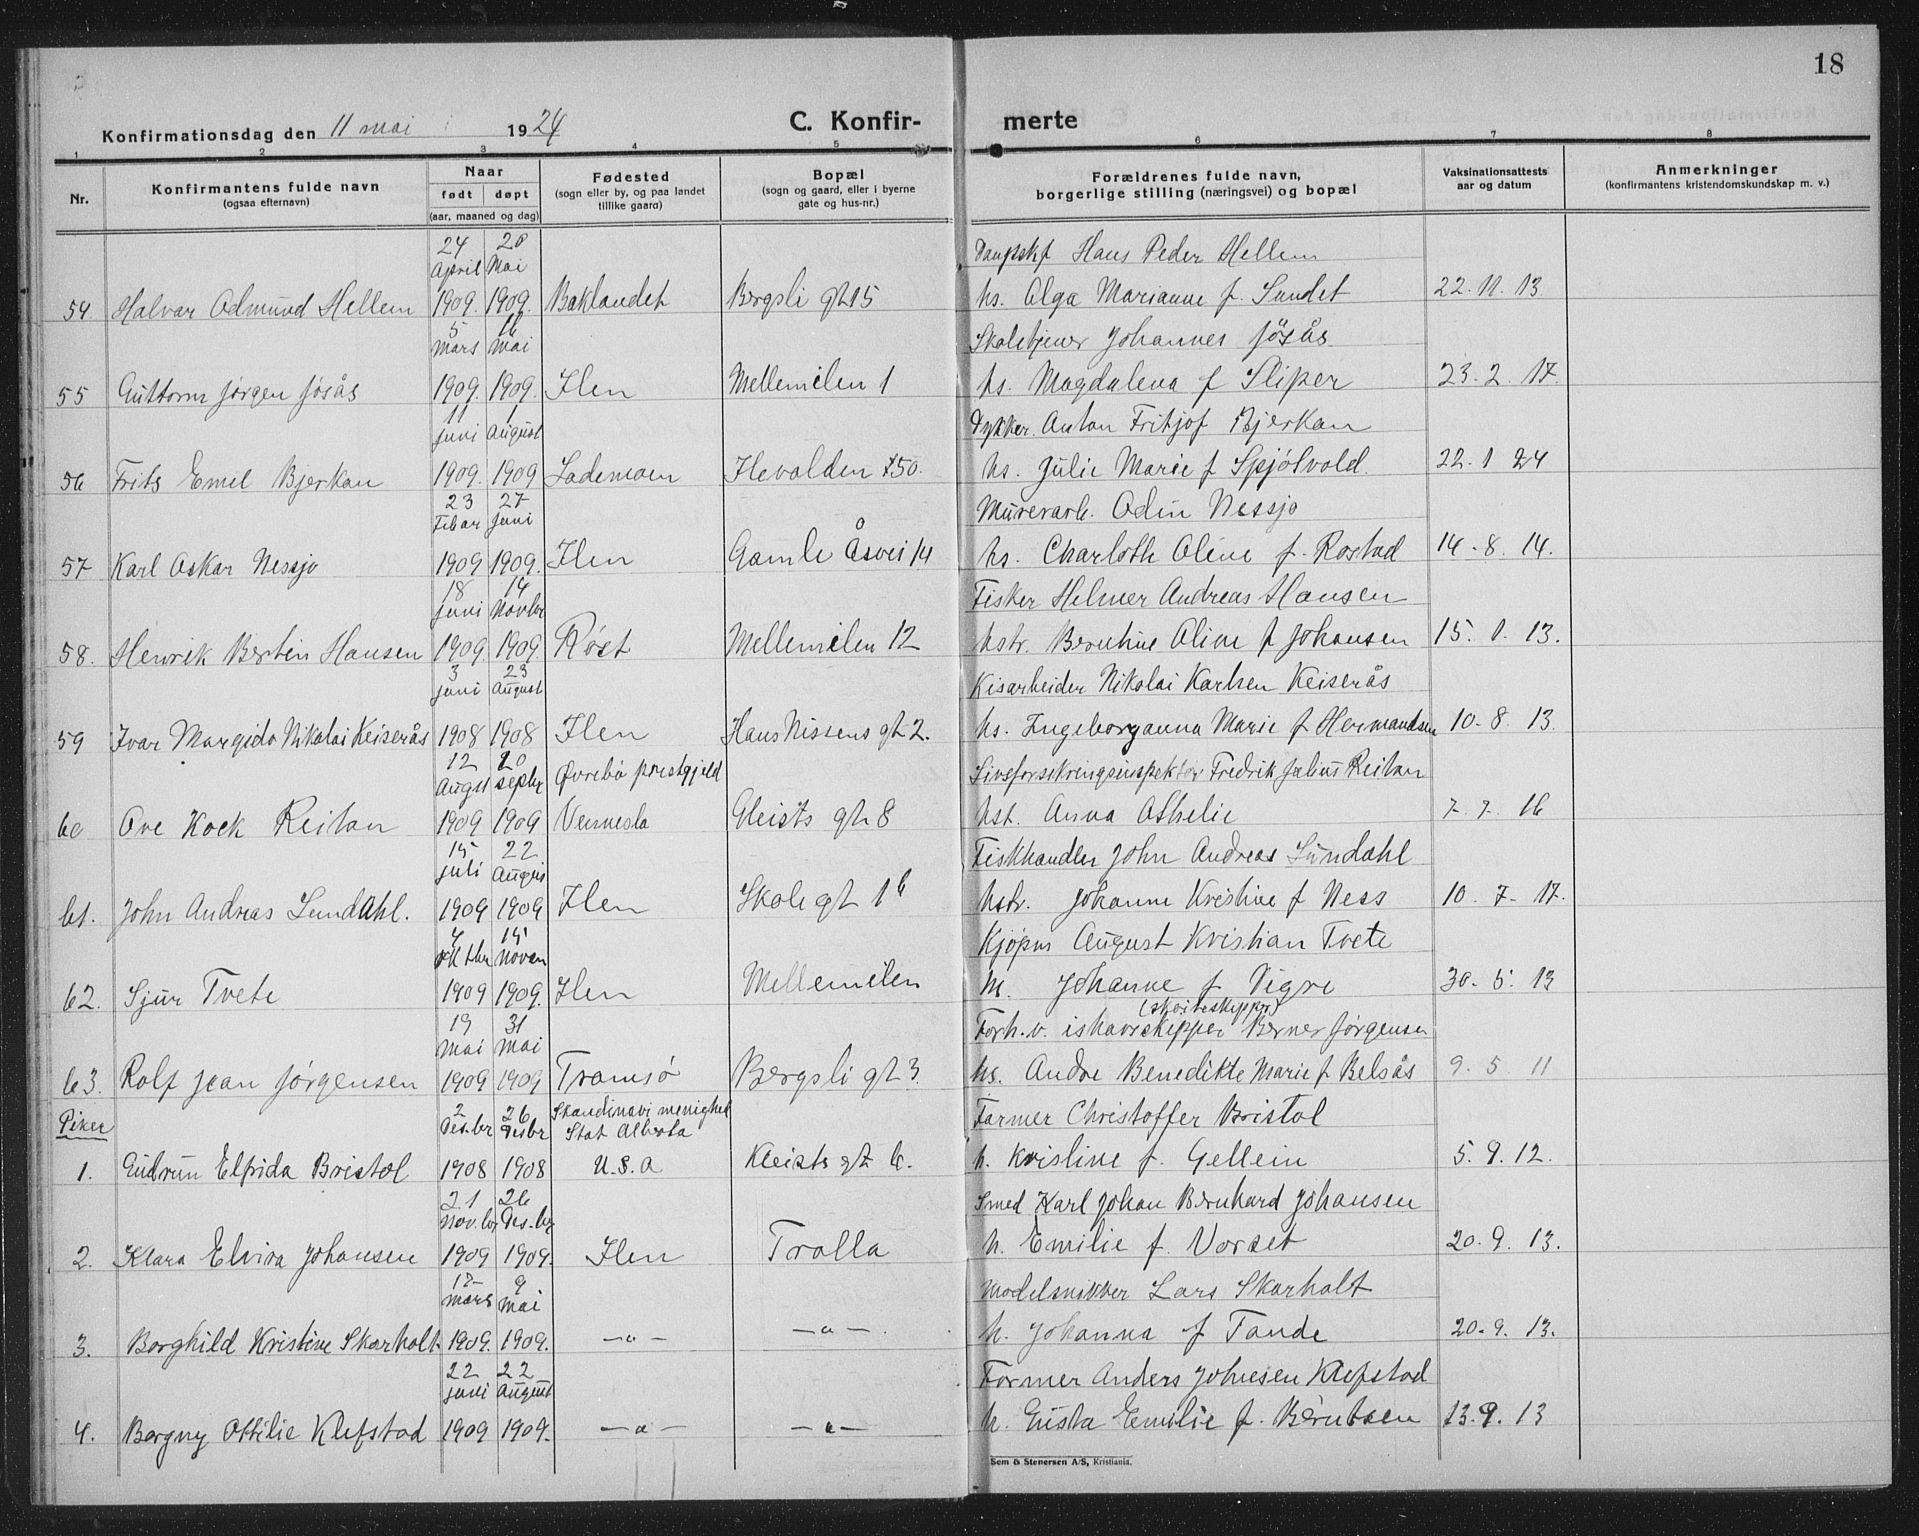 18
Konfirmationsdag den 11 mai 1924 C. Konfir- merte
1 2 3 4 5 6 7 8
Nr. Konfirmantens fulde navn (ogsaa efternavn) Naar født døpt (aar, maaned og dag) Fødested (sogn eller by, og paa landet tillike gaard) Bopæl (sogn og gaard, eller i byerne gate og hus-nr.) Forældrenes fulde navn, borgerlige stilling (næringsvei) og bopæl Vaksinationsattests aar og datum Anmerkninger (konfirmantens kristendomskundskap m. v.)
24 April 20 Mai Hans Peder Hellem
54. Halvar Odmund Hellem 1909. 1909. Baklandet Bergsli gt 15 hs. Olga Marianne f. Sundet 22. 11. 13.
5 Mars 16 mai Johannes Jøsås
55 Guttorm Jørgen Jøsås 1909. 1909. Ilen Mellemilen 1 hs. Magdalena f Sliper 23. 2. 17.
11 juni 1 August Dykker. Anton Fritjof Bjerkan
56 Frits Emil Bjerkan 1909. 1909 Lademoen Ilevolden 50. hs. Julie Marie f Spjøtvold. 22. 1 24
23 Febar 27 juni Murerarb. Odin Nessjø
57 Karl Oskar Nessjø 1909 1909. Ilen Gamle Åsvei 14 hs. Charloth Oline f. Rostad 14. 8. 14.
18 juni 14 Novbr Fisker Helmer Andreas Hansen
58. Henrik Bertin Hansen 1909 1909. Røst Mellemilen 12 hstr. Bernthine Oline f Johansen 15. 1. 13.
3 juni 23 August Kisarbeider Nikolai Karlsen Keiserås
59 Ivar Margido Nikolai Keiserås 1908 1908 Ilen Hans Nissens gt 2. hs. Ingeborganna Marie f Hermandsen 10. 8. 13.
12 Augst 20 septbr Øvrebø prestgjeld Livsforsikringsinspektør Fredrik Julius Reitan
60 Ove Kock Reitan 1909 1909 Vennesla Gleists gt 8 hst. Anna Othelie 7. 7. 16
15 juli 22 Augus Fiskhandler John Andreas Sundahl
61. John Andreas Sundahl. 1909 1909 Ilen Skole gt 1b hstr. Johanne Kristine f Ness 10. 7. 17.
4 oktbr 15 Noven Kjøpm August Kristian Tvete
62. Sjur Tvete 1909 1909. Ilen Mellemilen h. Johanne f Vigre 30. 5. 13
19 mai 31 mai Forh.v. ishavsskipper (skøiteskipper) Berner Jørgensen
63. Rolf Jean Jørgensen 1909 1909 Tromsø Bergsli gt 3. hs. Andre Benedikte Marie f Belsås 9. 5. 11
Piker 2 Des.br 26 Desbr Skandinavi menighed Stat Alberta Farmer Christoffer Bristol
1. Gudrun Elfrida Bristol 1908 1908 U.S.A Kleists gt 6. h. Kristine f. Gellein 5. 9. 12.
21 Nov.br 26 Des.br Smed Karl Johan Bernhard Johansen
2. Klara Elvira Johansen 1909 1909. Ilen Trolla h. Emilie f. Vorset 20. 9. 13.
17 mars 9 mai Modelsnikker Lars Skarholt
3. Borghild Kristine Skarholt 1909. 1909. —„— —„—. h. Johanna f Tande 20. 9. 13.
22 juni 22 August Former Anders Johnsen Klefstad
4. Borgny Ottilie Klefstad 1909 1909. —„— —„— h. Gusta Emilie f. Berntsen 13. 9. 13
Sem & Stenersen A/S, Kristiania.